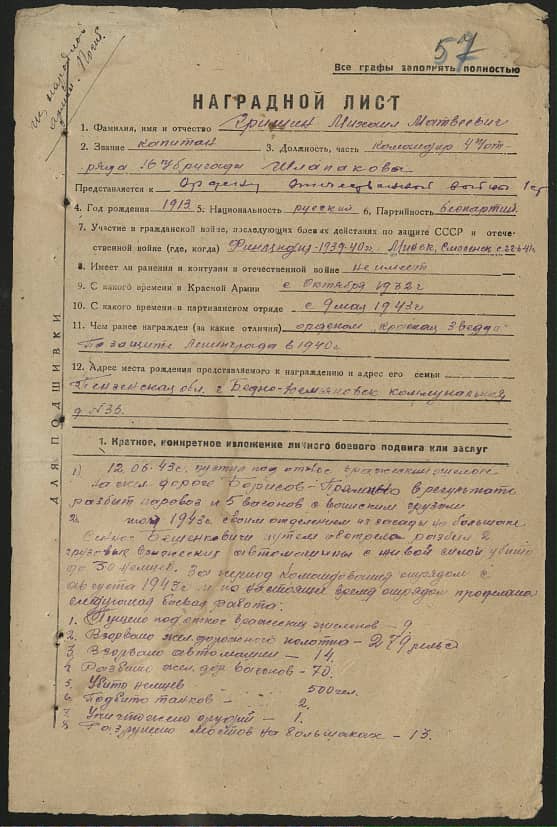 57
Все графы заполнять полностью
НАГРАДНОЙ ЛИСТ
1. Фамилия, имя и отчество Гришин Михаил Матвеевич
2. Звание капитан 3. Должность, часть командир 4 от-
ряда 16 бригады Шлапакова
Представляется к Ордену Отечественной войны 1 ст
4. Год рождения 1913 5. Национальность русский 6. Партийность беспартий.
7. Участие в гражданской войне, последующих боевых действиях по защите СССР и отече-
ственной войне (где, когда) Финляндия-1939-40 г. Минск, Смоленск с 22.6.41г
8. Имеет ли ранения и контузии в отечественной войне не имеет
9. С какого времени в Красной Армии с Октября 1932 г
10. С какого времени в партизанском отряде с 9 мая 1943 г
11. Чем ранее награжден (за какие отличия) орденом „Красная Звезда"
По защите Ленинграда в 1940 г
12. Адрес места рождения представляемого к награждению и адрес его семьи
Пензенская обл. г Бедно-Демьяновск коммунальная
д N 35.
ДЛЯ ПОДШИВКИ
1. Краткое, конкретное изложение личного боевого подвига или заслуг
1) 12.06.43 г. пустил под откос вражеский эшелон
на жел. дороге Борисов- в результате
разбит паровоз и 5 вагонов с воинским грузом
2. 1943 г. своим отделением из засады на большаке
Бешенковичи путем обстрела разбил 2
грузовых автомашины с живой силой убито
до 30 немцев. За период командования отрядом с
августа 1943 г и по настоящее время отрядом проделана
следующая боевая работа:
1. Пущено под откос вражеских эшелонов - 9
2. Взорвано жел. дорожного полотна - 279 рельс
3. Взорвано автомашин - 14.
4. Разбито жел. дор вагонов - 70.
5. Убито немцев - 500 чел.
6. Подбито танков - 2.
7. Уничтожено орудий - 1.
8. Разрушено мостов на большаках - 13.